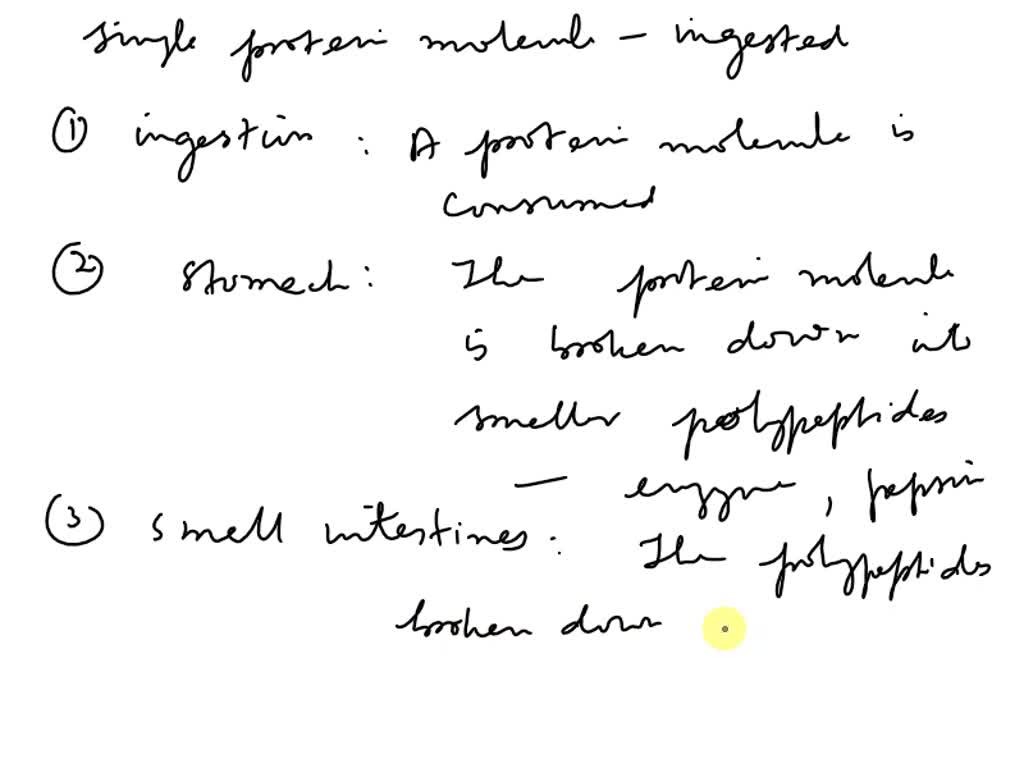 single protein molecule – ingested
① ingestion : A protein molecule is
consumed
② stomach : The protein molecule
is broken down into
smaller polypeptides
– enzyme, pepsin
③ small intestines : The polypeptides
broken down